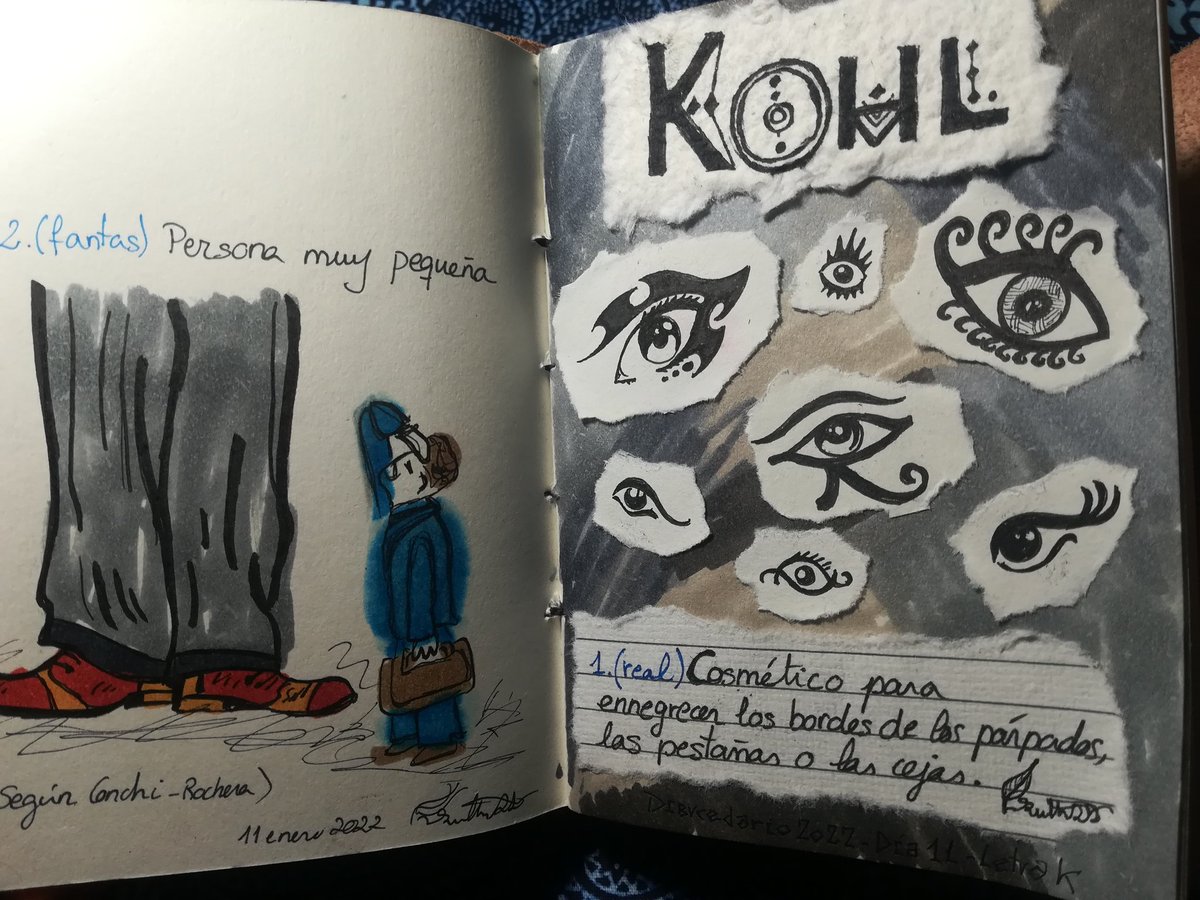 2. (fantas) Persona muy pequeña
Según Conchi-Rochera)
11 enero 2022
KOHL
1. (real) Cosmético para
ennegrecer los bordes de los párpados,
las pestañas o las cejas.
Dibucedario 2022 - Día 11 - Letra K